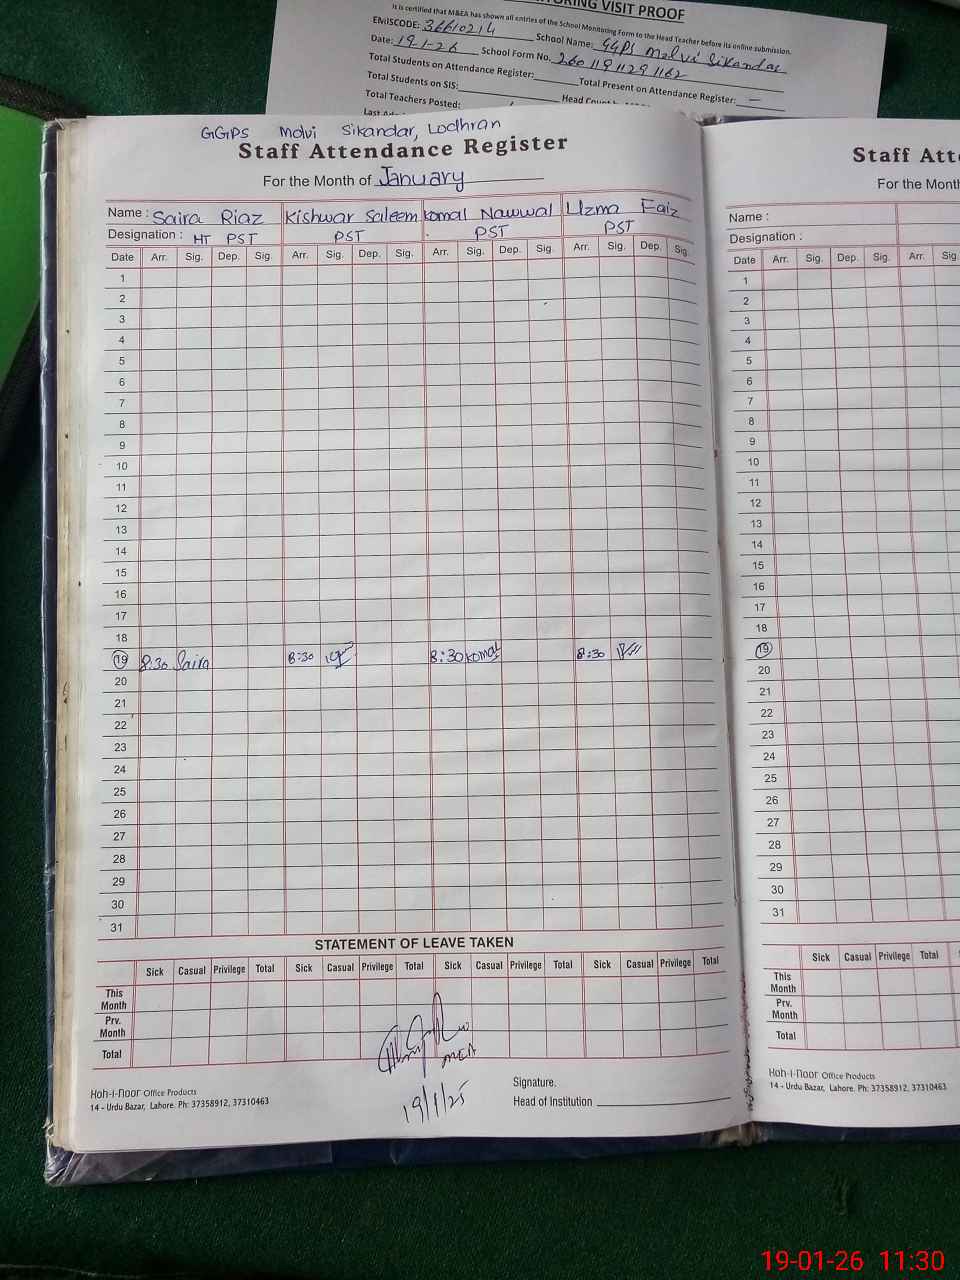 MONITORING VISIT PROOF
It is certified that M&EA has shown all entries of the School Monitoring Form to the Head Teacher before its online submission.
EMISCODE: 36610214 School Name: GGPS Molvi Sikandar
Date: 19-1-26 School Form No. 26011911291162
Total Students on Attendance Register: Total Present on Attendance Register: —
Total Students on SIS: Head Count
Total Teachers Posted:
GGPS Molvi Sikandar, Lodhran
Staff Attendance Register
For the Month of January
Name : Saira Riaz Kishwar Saleem Komal Nawwal Uzma Faiz
Designation : HT PST PST PST PST
Date Arr. Sig. Dep. Sig. Arr. Sig. Dep. Sig. Arr. Sig. Dep. Sig. Arr. Sig. Dep. Sig.
1
2
3
4
5
6
7
8
9
10
11
12
13
14
15
16
17
18
19 8:30 Saira 8:30 8:30 Komal 8:30
20
21
22
23
24
25
26
27
28
29
30
31
STATEMENT OF LEAVE TAKEN
Sick Casual Privilege Total Sick Casual Privilege Total Sick Casual Privilege Total Sick Casual Privilege Total
This Month
Prv. Month
Total
MEA
19/1/25
Signature.
Head of Institution
Hoh-i-noor Office Products
14 - Urdu Bazar, Lahore. Ph: 37358912, 37310463
Staff Atte
For the Month
Name :
Designation :
Date Arr. Sig. Dep. Sig. Arr. Sig.
1
2
3
4
5
6
7
8
9
10
11
12
13
14
15
16
17
18
19
20
21
22
23
24
25
26
27
28
29
30
31
Sick Casual Privilege Total
This Month
Prv. Month
Total
Hoh-i-noor Office Products
14 - Urdu Bazar, Lahore. Ph: 37358912, 37310463
19-01-26 11:30